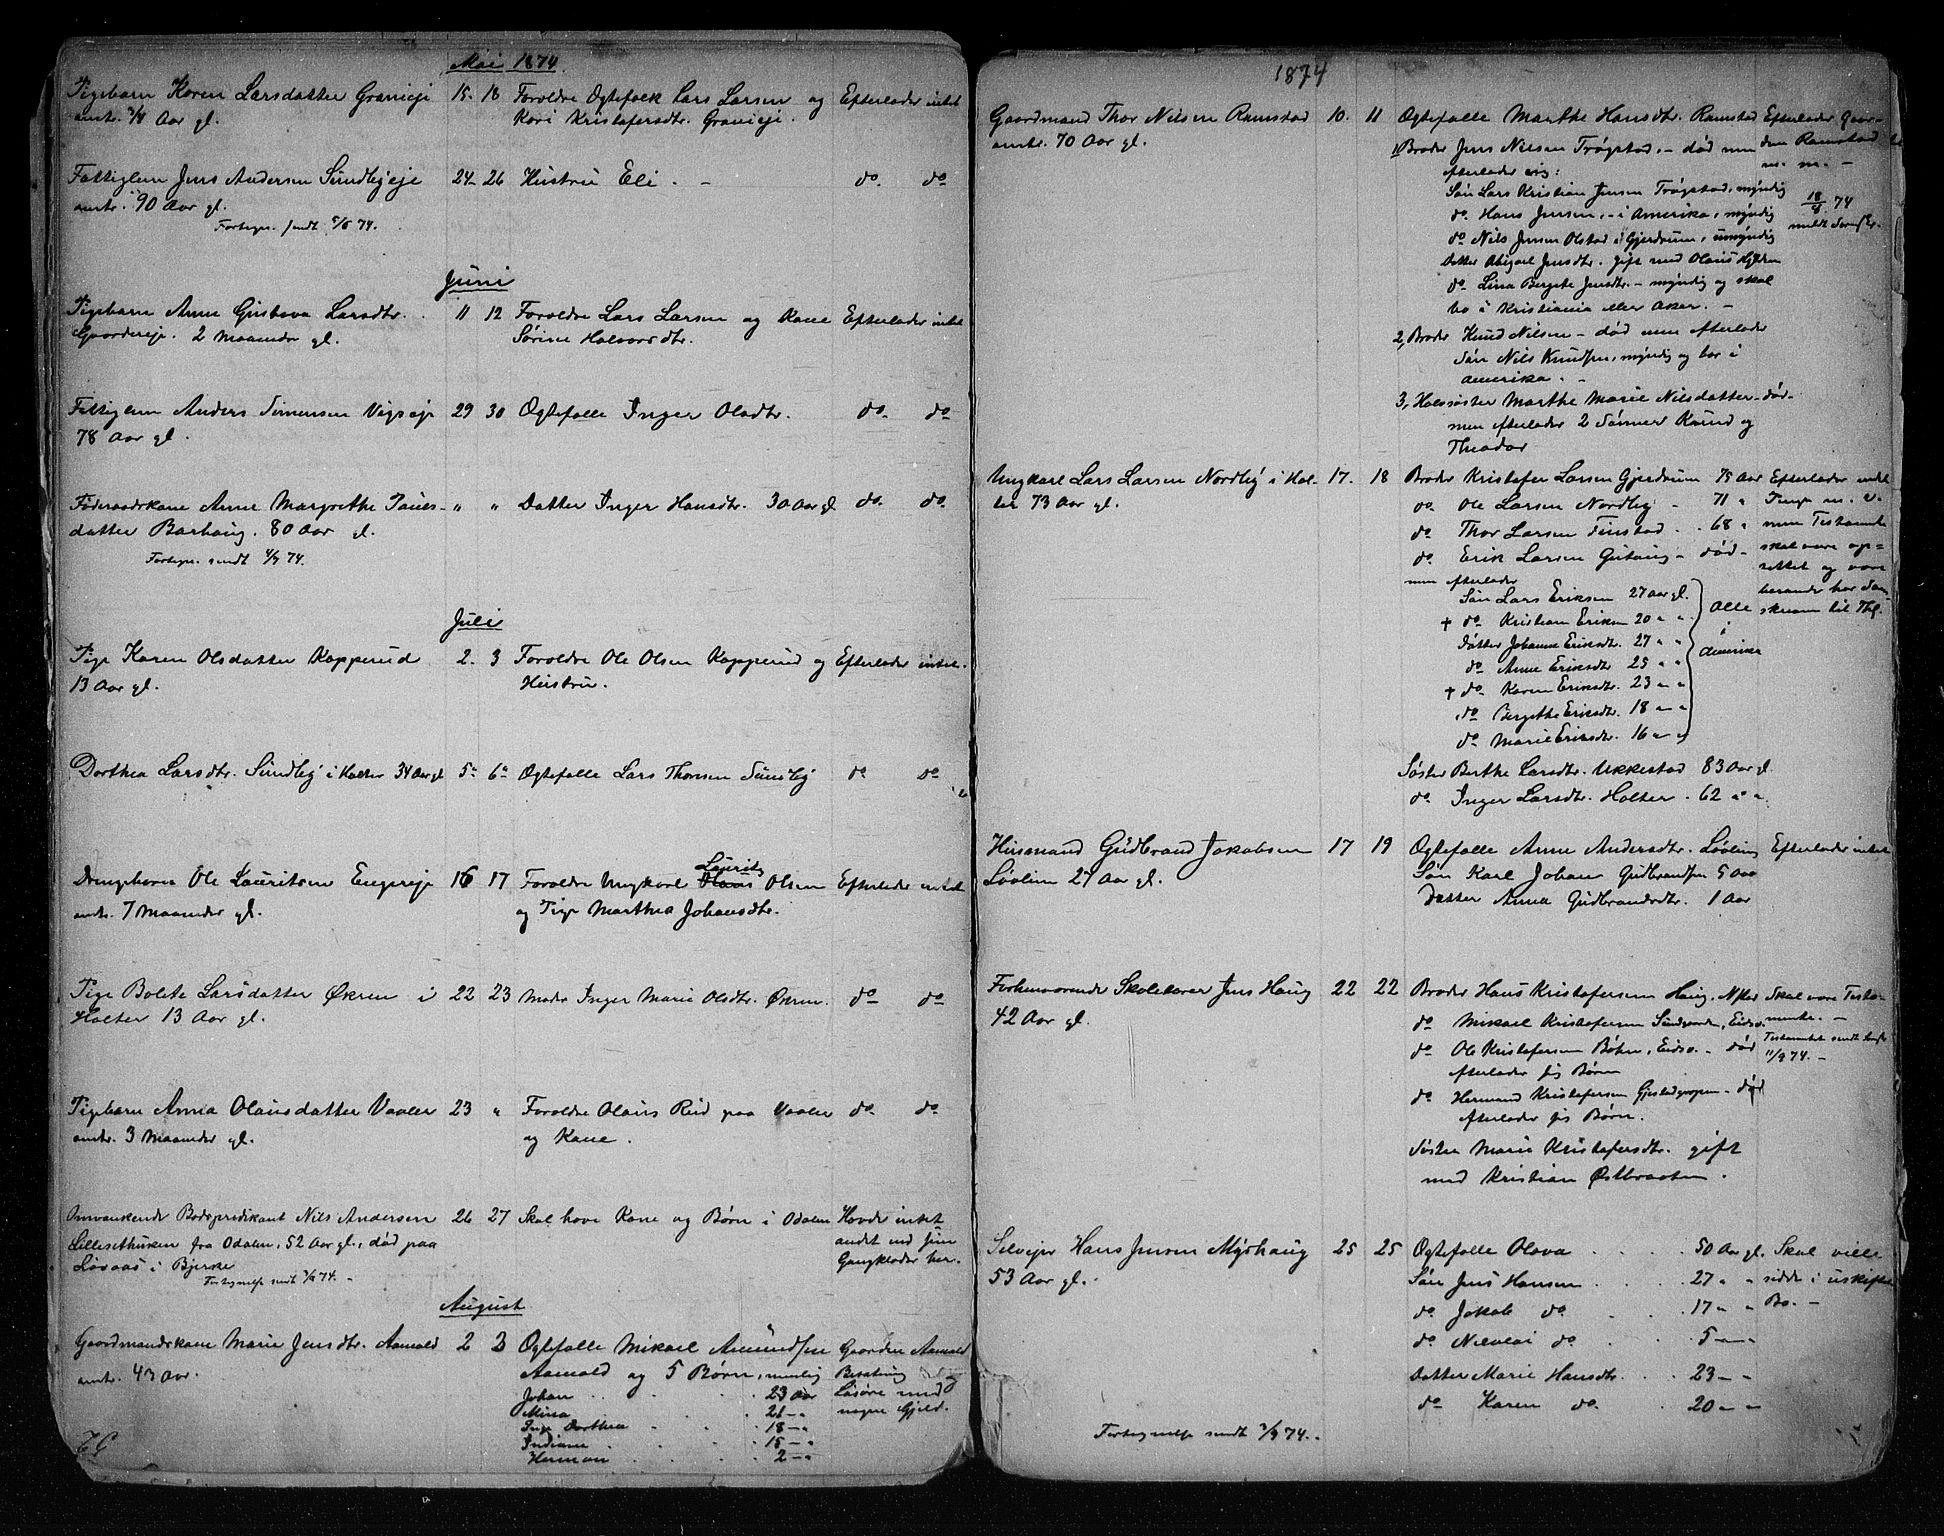 Mai 1874.
Pigebarn Karen Larsdatter Granieje 15. 18 Foroldre Ogtefolk Lars Larsen og Efterlader intet
omtr. 3/4 Aar gl. Kari Kristofersdtr. Granieje.
Fattiglem Jens Andersen Sundbyeje 24- 26 Hustru Eli. - do. do
omtr. 90 Aar gl.
Fortegn. sendt 5/6 74.
Juni
Pigebarn Anne Gustava Larsdtr. 11 12 Foroldre Lars Larsen og Kone Efterlader intet
Gaardereje. 2 Maaneder gl. Sørine Halvorsdtr.
Fattiglem Anders Simensen Vigseje 29 30 Ogtefolle Inger Olsdtr. do. do
78 Aar gl.
Føderaadskone Anne Margrethe Paules- " " Datter Inger Hansdtr. 30 Aar gl do. do.
datter Barhaug. 80 Aar gl.
Fortegn. sendt 4/7 74.
Juli
Pige Karen Olsdatter Kopperud 2. 3 Foroldre Ole Olsen Kopperud og Efterlader intet.
13 Aar gl. Hustru.
Dorthea Larsdtr. Sundby i Holter 34 Aar gl 5" 6" Ogtefolle Lars Thorsen Sundby do do.
Laurits
Drengebarn Ole Lauritsen Engereje 16 17 Foroldre Ungkarl Olaus Olsen Efterlader intet
omtr. 7 Maaneder gl. og Pige Marthea Johansdtr.
Pige Bolete Larsdatter Økren i 22 23 Moder Inger Marie Olsdtr. Økren. do do.
Holter 13 Aar gl.
Pigebarn Anna Olausdatter Vaaler 23 " Foroldre Olaus Rud paa Vaaler do. do.
omtr. 3 Maaneder gl. og Kone.
Omvankende Bodspredikant Nils Andersen 26 27 Skal have Kone og Børn i Odalen Havde intet
Lillesethusken fra Odalen, 52 Aar gl., død paa andet end sine
Løvaas i Bjerke Gangkloder her.
Fortegnelse sendt 3/8 74. -
August
Gaardmandskone Marie Jensdtr. Aamold 2 3 Ogtefolle Mikael Amundsen Gaarden Aamold
omtr. 43 Aar. Aamold og 5 Børn, nemlig Besætning
Johan . . . 23 Aar Løsøre med
Mina . . 21 - " nogen Gjeld.
Inge Dorthea . . 18 - "
Indiane . . . 15 - "
Herman . . . 2 - "
1874
Gaardmand Thor Nilsen Ramstad 10. 11 Ogtefolle Marthe Hansdtr. Ramstad Efterlader Gaar-
omtr. 70 Aar gl. 1, Broder Jens Nilsen Trøgstad, - død men den Ramstad
efterlader sig: m. m. -
Søn Lars Kristian Jensen Trøgstad, myndig
do. Hans Jensen, - i Amerika, myndig 18/8 74
do Nils Jensen Olstad i Gjerdrum, umyndig meldt
Datter Abigael Jensdtr. gift med Olaus
do. Lina Bergete Jensdtr. - myndig og skal
bo i Kristiania eller Aker. -
2, Broder Knud Nilsen - død men efterlader
Søn Nils Knudsen, myndig og bor i
Amerika. -
3, Halvsøster Marthe Marie Nilsdatter - død -
men efterlader 2 Sønner Knud og
Theodor
Ungkarl Lars Larsen Nordby i Hol- 17. 18 Broder Kristofer Larsen Gjerdrum 75 Aar Efterlader endel
ter 73 Aar gl. do. Ole Larsen Nordby - 71 " Penge m. v.
do. Thor Larsen Finstad . . 68 " men Testamente
do. Erik Larsen Gutaug - død - skal være op=
men efterlader rettet og være
Søn Lars Eriksen 27 Aar gl.
+ do. Kristian Eriksen 20 " " Alle
Datter Johanne Eriksdtr. 27 " " i
do. Anne Eriksdtr. 25 " " Amerika
+ do. Karen Eriksdtr. 23 " "
do Bergethe Eriksdtr. 18 " "
do. Marie Eriksdtr. 16 " "
Søster Berthe Larsdtr. Ukkestad 83 Aar gl.
do. Inger Larsdtr. Holter . 62 " "
Husmand Gudbrand Jakobsen 17 19 Ogtefolle Anne Andersdtr. Løvlien Efterlader intet
Løvlien 27 Aar gl. Søn Karl Johan Gudbrandsen 5 Aar
Datter Anna Gudbrandsdtr. 1 Aar
Forhenværende Skolelærer Jens Haug 22 22 Broder Hans Kristofersen Haug, Skal være Testa-
42 Aar gl. do Mikael Kristofersen Sundgaarden, Eidsv. mente. -
do Ole Kristofersen Bøhn, Eidsv. - død Testamentet sendt
efterlader sig Børn 11/9 74. -
do. Hermand Kristofersen - død
efterlader sig Børn.
Søster Marie Kristofersdtr. gift
med Kristian Østbraaten.
Selvejer Hans Jensen Myrhaug 25 25 Ogtefolle Olava . . . 50 Aar gl. Skal ville
53 Aar gl. Søn Jens Hansen . . 27 " " sidde i uskiftet
do. Jakob do . . 17 " " Bo. -
do. Nicolai do. . . 5 - "
Datter Marie Hansdtr. . . 23 - "
do. Karen do. . . 20 - "
Fortegnelse sendt 3/9 74. -